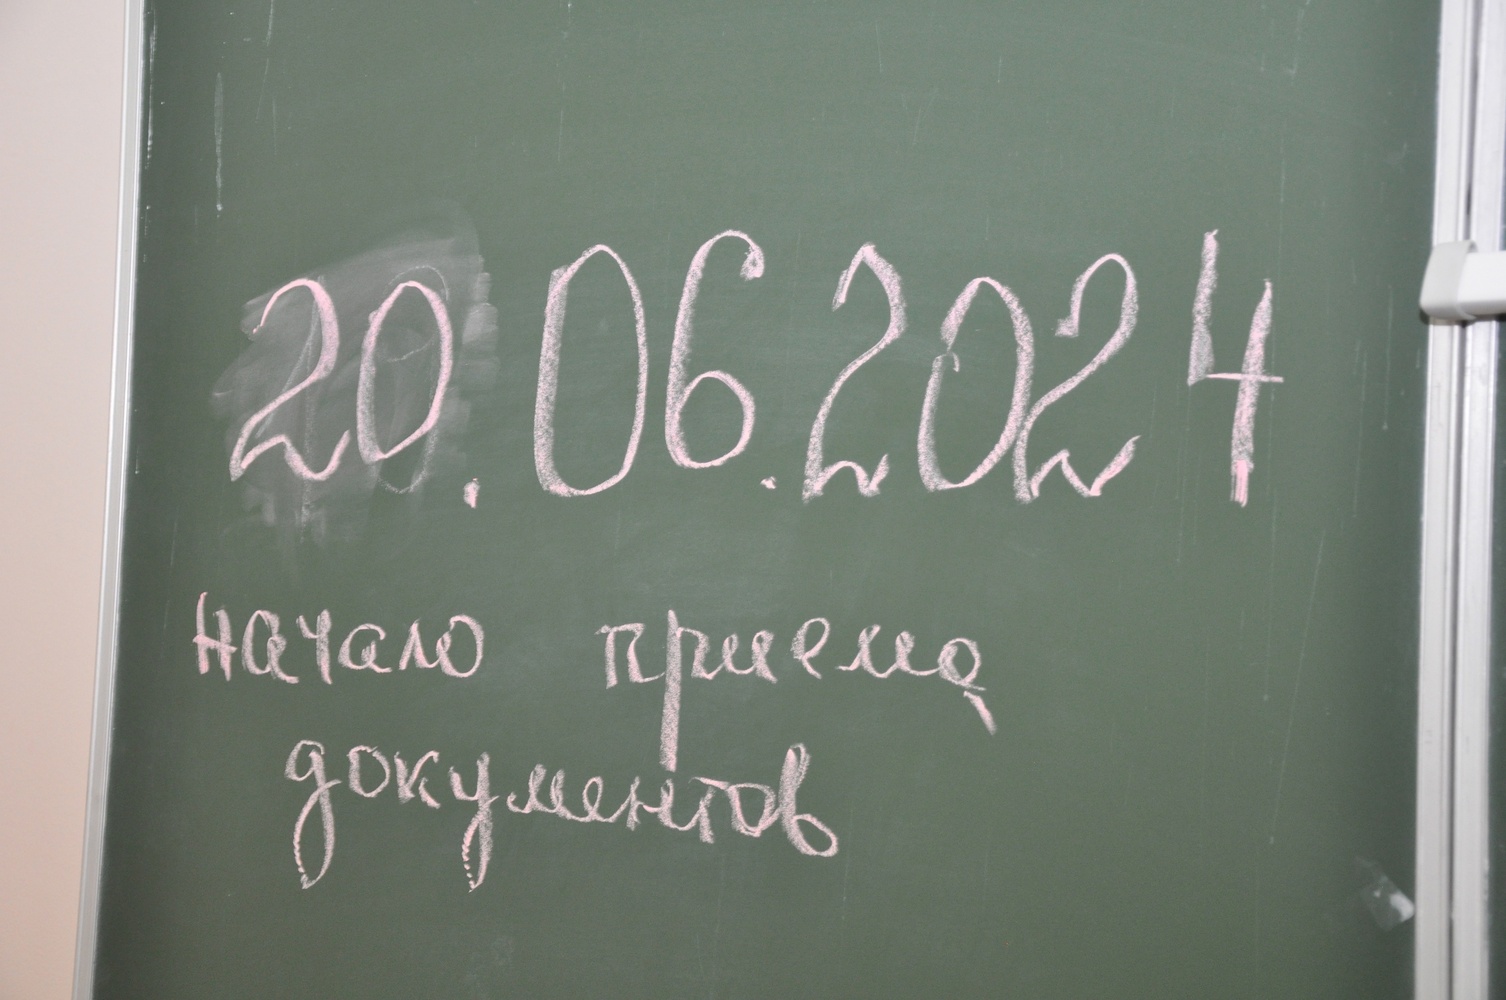 20.06.2024
начало приема
документов